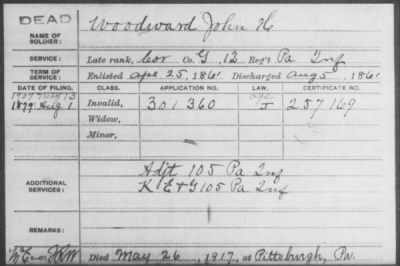 DEAD
NAME OF SOLDIER: Woodward John H
SERVICE: Late rank, Cor Co. G, 12 Reg't Pa Inf
TERM OF SERVICE: Enlisted Apr 25, 1861 Discharged Aug 5, 1861
DATE OF FILING. CLASS. APPLICATION NO. LAW. CERTIFICATE NO.
1907 May 13
1879 Aug 1 Invalid, 301360 J 257169
Widow,
Minor,
ADDITIONAL SERVICES: Adjt 105 Pa Inf
K E & G 105 Pa Inf
REMARKS:
Died May 26, 1917, at Pittsburgh, Pa.